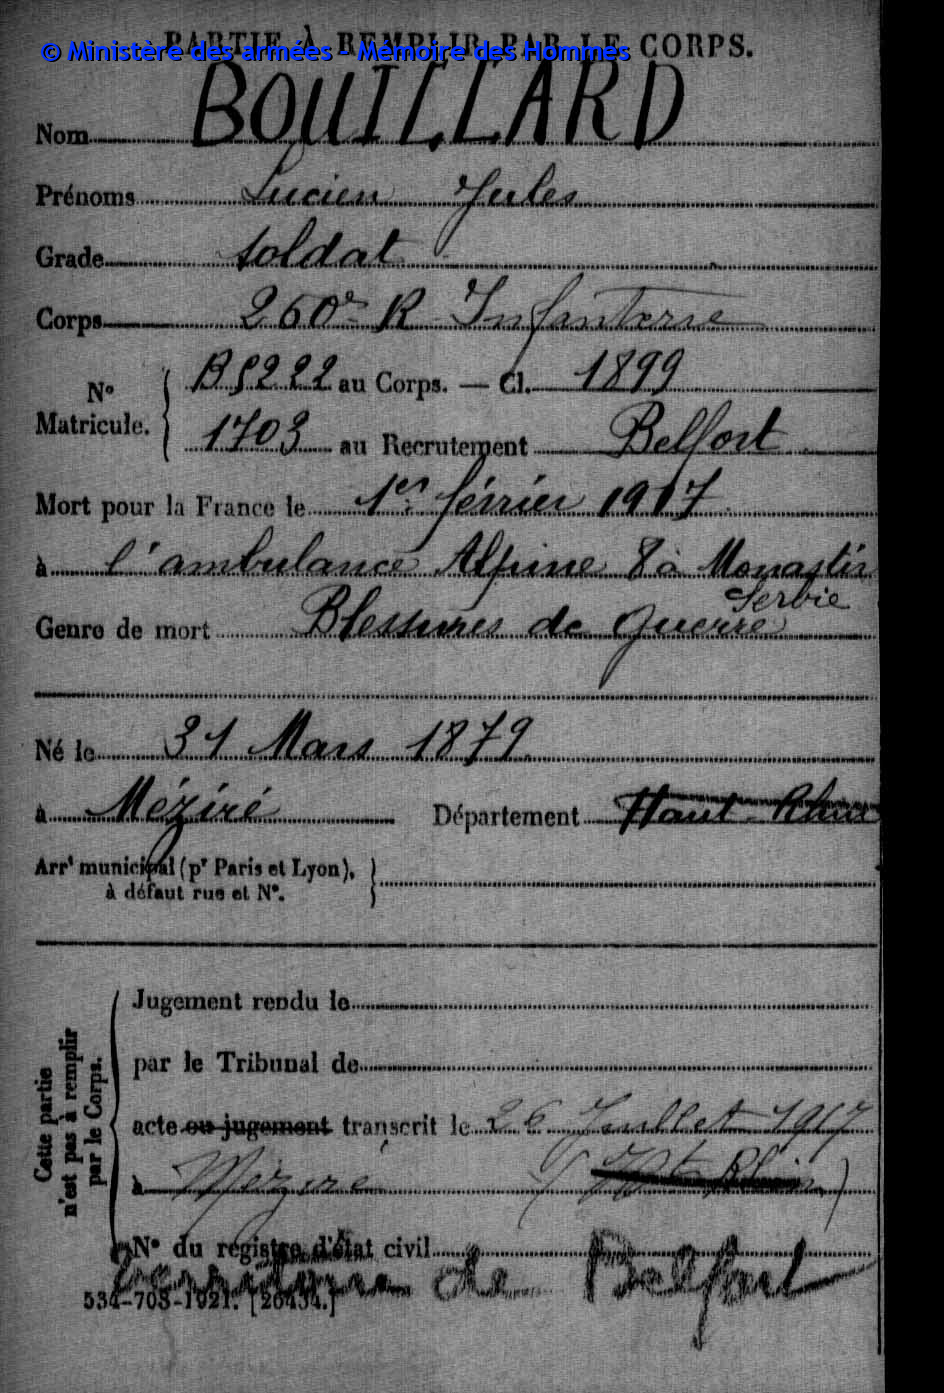 PARTIE À REMPLIR PAR LE CORPS.
© Ministère des armées - Mémoire des Hommes
Nom BOUILLARD
Prénoms Lucien Jules
Grade soldat
Corps 260e R Infanterie
No Matricule. { B5222 au Corps. — Cl. 1899
1703 au Recrutement Belfort
Mort pour la France le 1er février 1917
à l'ambulance Alpine 8 à Monastir
Serbie
Genre de mort Blessures de guerre
Né le 31 Mars 1879
à Méziré Département Haut-Rhin
Arrt municipal (pr Paris et Lyon),
à défaut rue et No.
Cette partie
n'est pas à remplir
par le Corps.
Jugement rendu le
par le Tribunal de
acte ou jugement transcrit le 26 Juillet 1917
à Méziré (Ht Rhin)
No du registre d'état civil
territoire de Belfort
534-708-1921. [26434.]